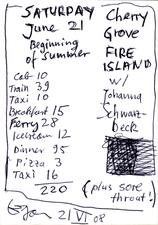 SATURDAY
June 21
Beginning
of Summer
Cherry
Grove
FIRE
ISLAND
w/
Johanna
Schwarz-
beck
Cab 10
Train 39
Taxi 10
Breakfast 15
Ferry 28
Icecream 12
Dinner 95
Pizza 3
Taxi 16
220
(plus sore
throat!)
21 VI 08